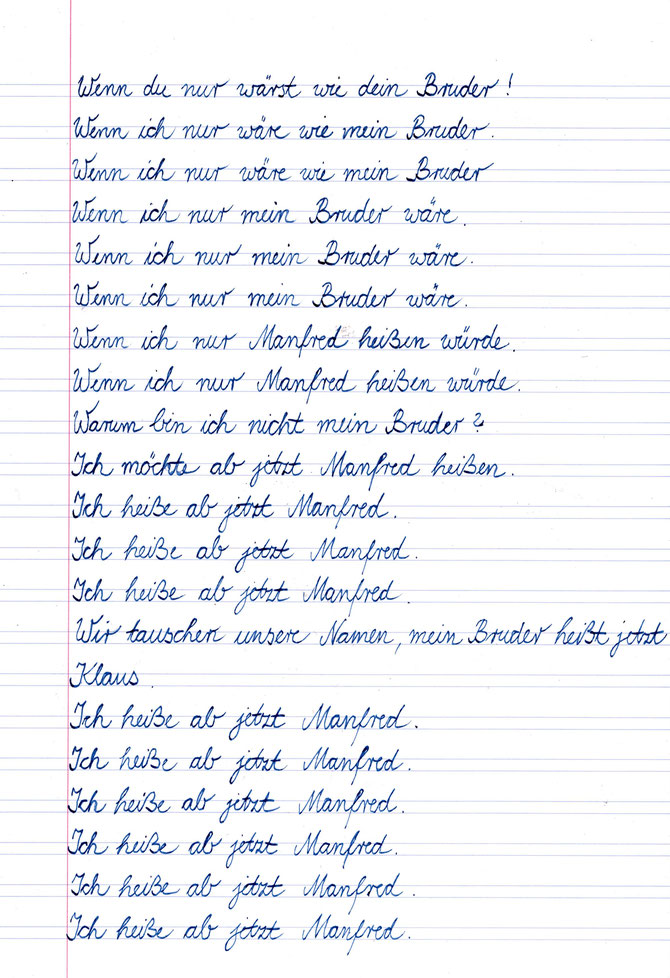 Wenn du nur wärst wie dein Bruder!
Wenn ich nur wäre wie mein Bruder.
Wenn ich nur wäre wie mein Bruder
Wenn ich nur mein Bruder wäre.
Wenn ich nur mein Bruder wäre.
Wenn ich nur mein Bruder wäre.
Wenn ich nur Manfred heißen würde.
Wenn ich nur Manfred heißen würde.
Warum bin ich nicht mein Bruder?
Ich möchte ab jetzt Manfred heißen.
Ich heiße ab jetzt Manfred.
Ich heiße ab jetzt Manfred.
Ich heiße ab jetzt Manfred.
Wir tauschen unsere Namen, mein Bruder heißt jetzt
Klaus.
Ich heiße ab jetzt Manfred.
Ich heiße ab jetzt Manfred.
Ich heiße ab jetzt Manfred.
Ich heiße ab jetzt Manfred.
Ich heiße ab jetzt Manfred.
Ich heiße ab jetzt Manfred.